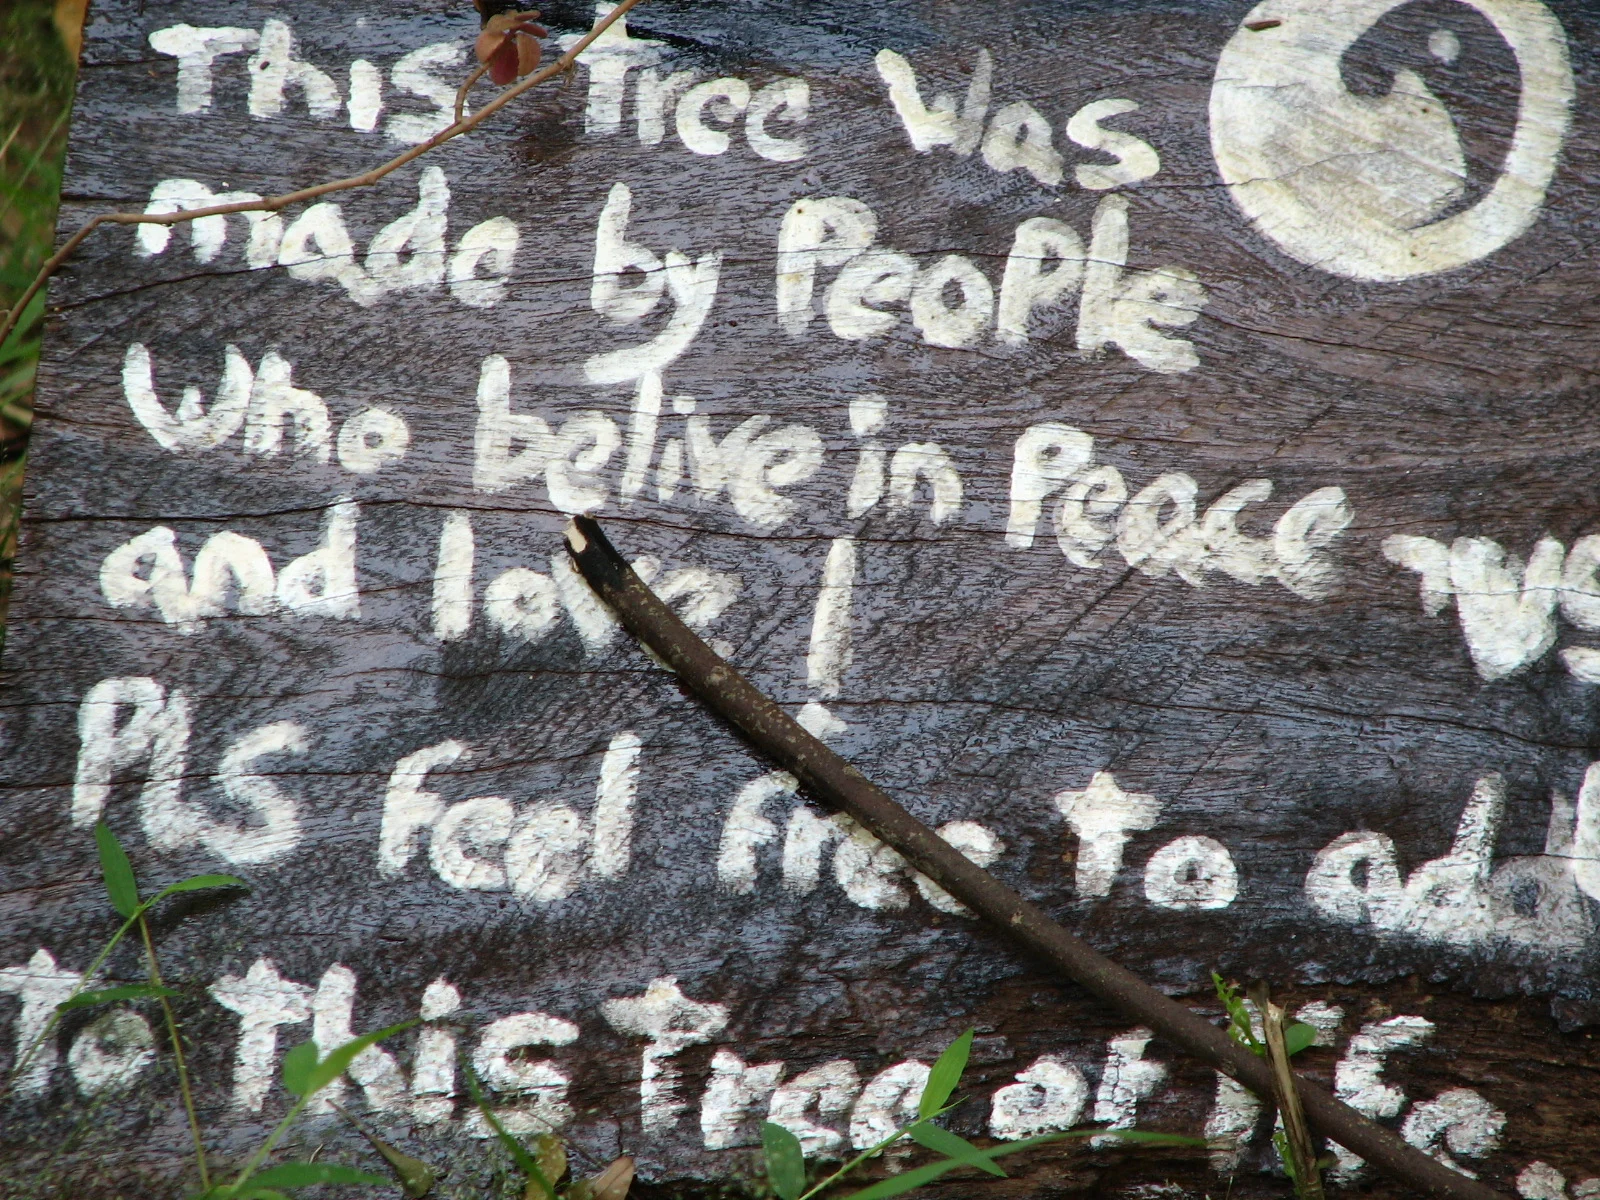 This Tree Was
made by People
Who belive in Peace
and love!
PLS feel free to add
To this tree of life